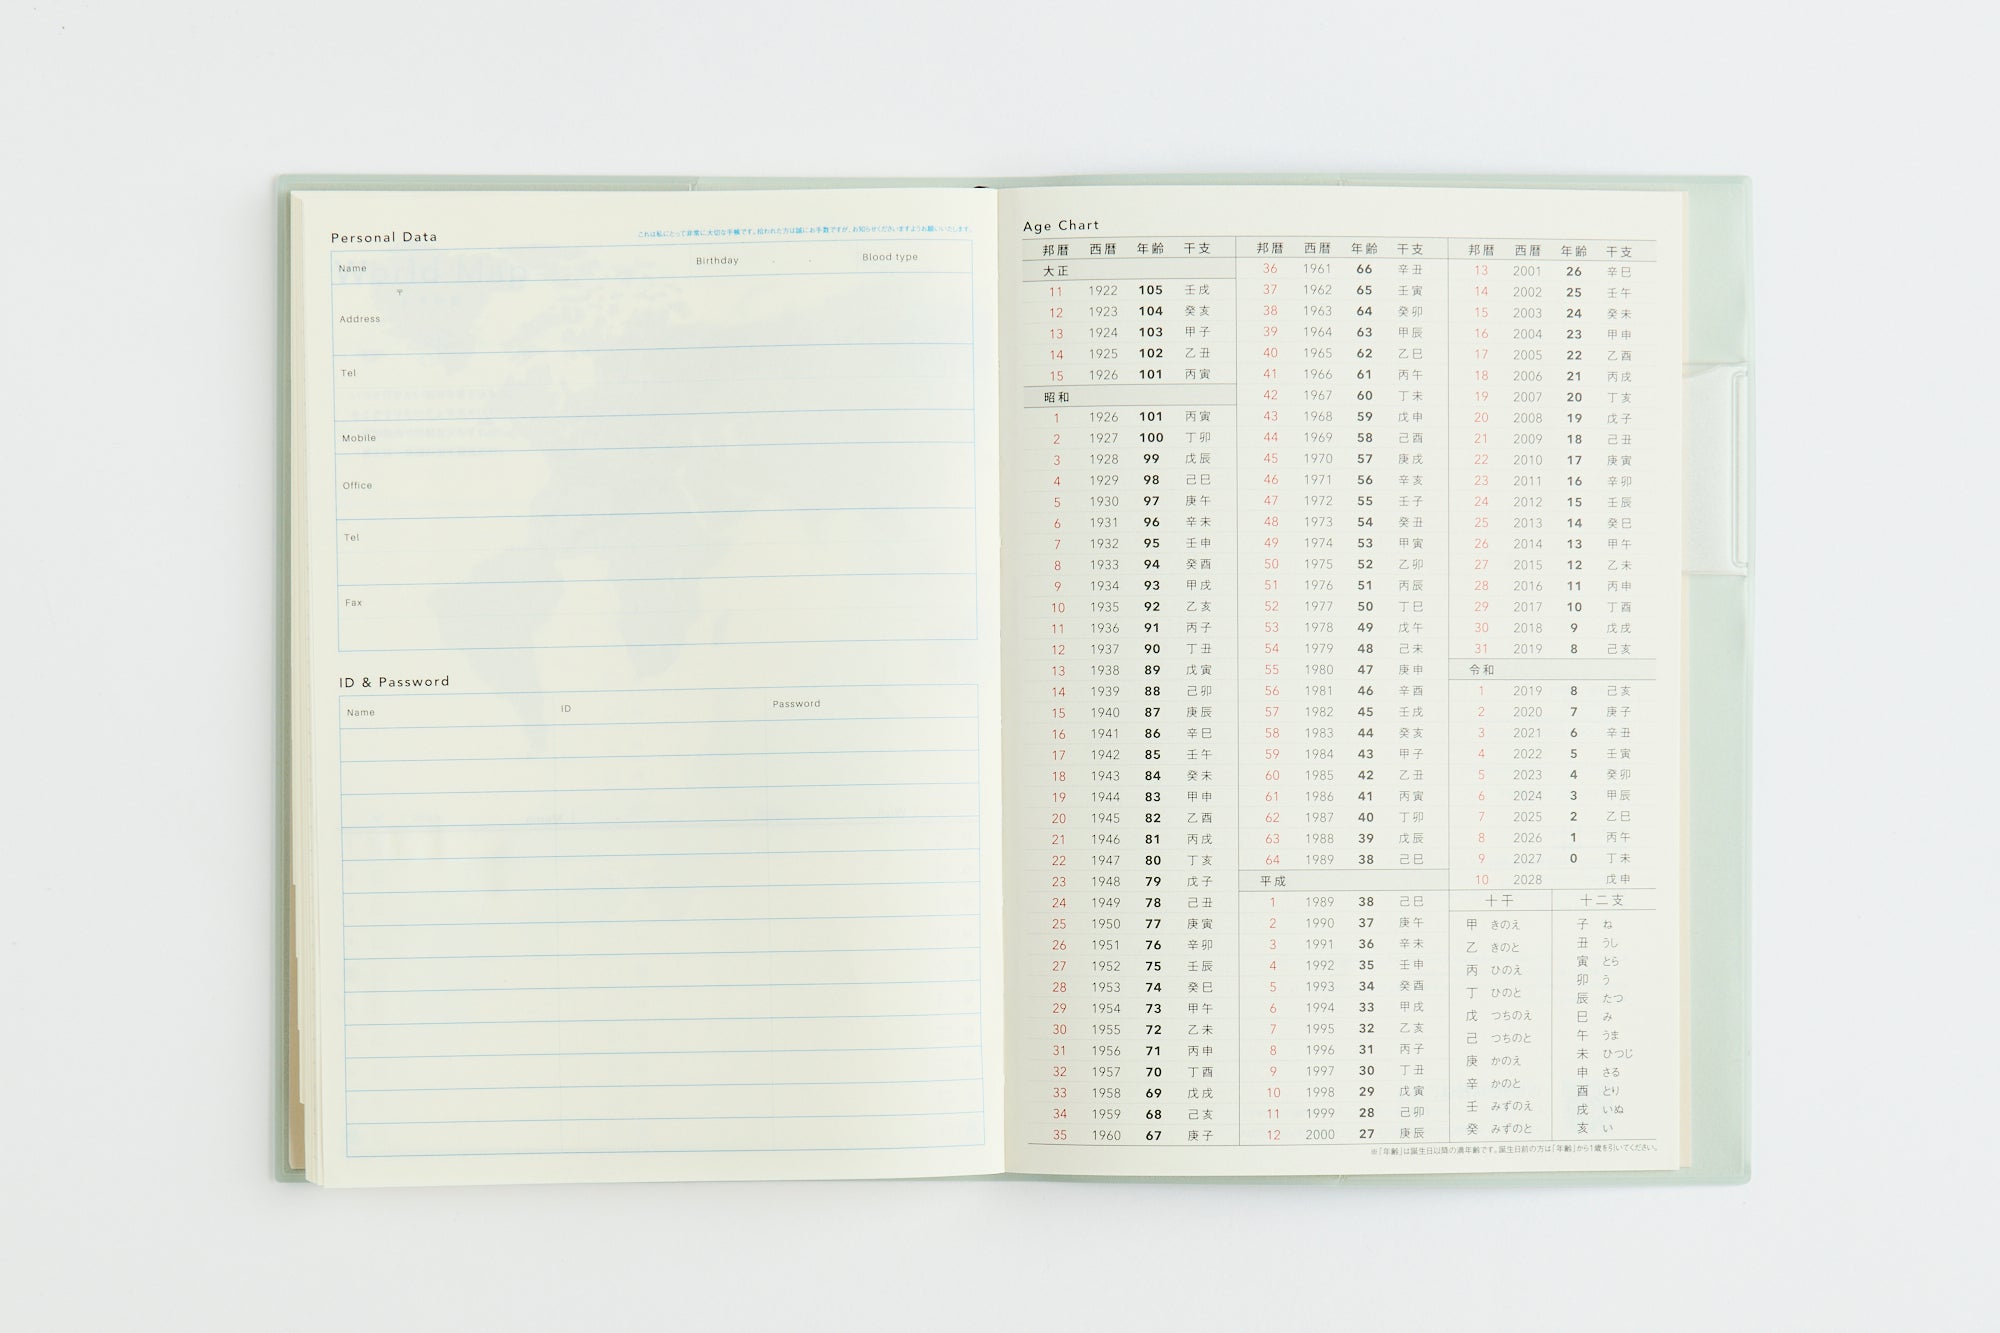 Personal Data
これは私にとって非常に大切な手帳です。拾われた方は誠にお手数ですが、お知らせくださいますようお願いいたします。
Name
Birthday . .
Blood type
〒
Address
Tel
Mobile
Office
Tel
Fax
ID & Password
Name ID Password
Age Chart
邦暦 西暦 年齢 干支
大正
11 1922 105 壬戌
12 1923 104 癸亥
13 1924 103 甲子
14 1925 102 乙丑
15 1926 101 丙寅
昭和
1 1926 101 丙寅
2 1927 100 丁卯
3 1928 99 戊辰
4 1929 98 己巳
5 1930 97 庚午
6 1931 96 辛未
7 1932 95 壬申
8 1933 94 癸酉
9 1934 93 甲戌
10 1935 92 乙亥
11 1936 91 丙子
12 1937 90 丁丑
13 1938 89 戊寅
14 1939 88 己卯
15 1940 87 庚辰
16 1941 86 辛巳
17 1942 85 壬午
18 1943 84 癸未
19 1944 83 甲申
20 1945 82 乙酉
21 1946 81 丙戌
22 1947 80 丁亥
23 1948 79 戊子
24 1949 78 己丑
25 1950 77 庚寅
26 1951 76 辛卯
27 1952 75 壬辰
28 1953 74 癸巳
29 1954 73 甲午
30 1955 72 乙未
31 1956 71 丙申
32 1957 70 丁酉
33 1958 69 戊戌
34 1959 68 己亥
35 1960 67 庚子
邦暦 西暦 年齢 干支
36 1961 66 辛丑
37 1962 65 壬寅
38 1963 64 癸卯
39 1964 63 甲辰
40 1965 62 乙巳
41 1966 61 丙午
42 1967 60 丁未
43 1968 59 戊申
44 1969 58 己酉
45 1970 57 庚戌
46 1971 56 辛亥
47 1972 55 壬子
48 1973 54 癸丑
49 1974 53 甲寅
50 1975 52 乙卯
51 1976 51 丙辰
52 1977 50 丁巳
53 1978 49 戊午
54 1979 48 己未
55 1980 47 庚申
56 1981 46 辛酉
57 1982 45 壬戌
58 1983 44 癸亥
59 1984 43 甲子
60 1985 42 乙丑
61 1986 41 丙寅
62 1987 40 丁卯
63 1988 39 戊辰
64 1989 38 己巳
平成
1 1989 38 己巳
2 1990 37 庚午
3 1991 36 辛未
4 1992 35 壬申
5 1993 34 癸酉
6 1994 33 甲戌
7 1995 32 乙亥
8 1996 31 丙子
9 1997 30 丁丑
10 1998 29 戊寅
11 1999 28 己卯
12 2000 27 庚辰
邦暦 西暦 年齢 干支
13 2001 26 辛巳
14 2002 25 壬午
15 2003 24 癸未
16 2004 23 甲申
17 2005 22 乙酉
18 2006 21 丙戌
19 2007 20 丁亥
20 2008 19 戊子
21 2009 18 己丑
22 2010 17 庚寅
23 2011 16 辛卯
24 2012 15 壬辰
25 2013 14 癸巳
26 2014 13 甲午
27 2015 12 乙未
28 2016 11 丙申
29 2017 10 丁酉
30 2018 9 戊戌
31 2019 8 己亥
令和
1 2019 8 己亥
2 2020 7 庚子
3 2021 6 辛丑
4 2022 5 壬寅
5 2023 4 癸卯
6 2024 3 甲辰
7 2025 2 乙巳
8 2026 1 丙午
9 2027 0 丁未
10 2028 戊申
十干
甲 きのえ
乙 きのと
丙 ひのえ
丁 ひのと
戊 つちのえ
己 つちのと
庚 かのえ
辛 かのと
壬 みずのえ
癸 みずのと
十二支
子 ね
丑 うし
寅 とら
卯 う
辰 たつ
巳 み
午 うま
未 ひつじ
申 さる
酉 とり
戌 いぬ
亥 い
※「年齢」は誕生日以降の満年齢です。誕生日前の方は「年齢」から1歳を引いてください。